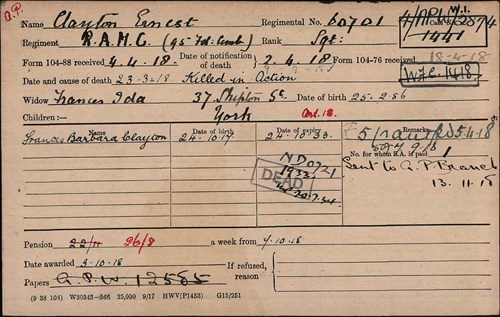 A.P.
Name Clayton Ernest Regimental No. 60701 M.I.
Regiment R.A.M.C. (95 Fd: Amb) Rank Sgt: 1441
Form 104-88 received 4.4.18. Date of notification of death 2.4.18. Form 104-76 received 18-4-18
Date and cause of death 23-3-18 Killed in Action W.F.C. 1418
Widow Frances Ida 37 Shipton St Date of birth 25.2.86
Children:- York Oct. 18.
Name Date of birth Date of expiry Remarks
Frances Barbara Clayton 24.10.17 24.10.33 5/- 15.4.18
No. for whom S.A. is paid 1
ND0721
1933
DEAD
Sent to G.P. Branch
13.11.18
Pension 22/11 26/8 a week from 7.10.18
Date awarded 3-10-18 If refused, reason
Papers G.P.W. 12585
(9 38 103) W30343—566 25,000 9/17 HWV(P1453) G15/251